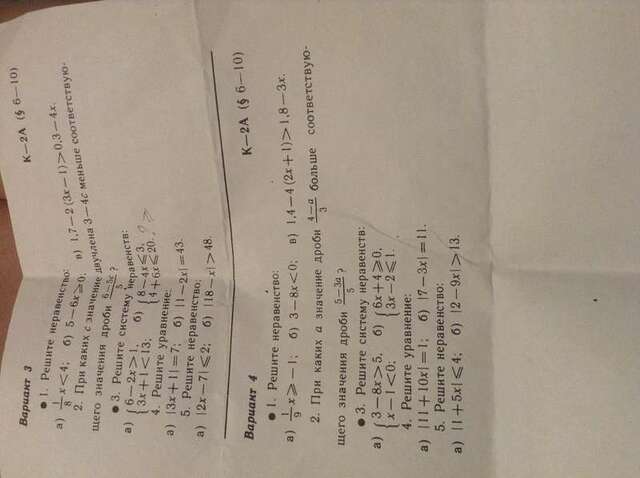 Вариант 3
К—2А (§ 6—10)
● 1. Решите неравенство:
а) 1/8 x<4; б) 5—6x⩾0; в) 1,7—2(3x—1)>0,3—4x.
2. При каких c значение двучлена 3—4c меньше соответствую-
щего значения дроби (6—5c)/5 ?
● 3. Решите систему неравенств:
а) {6—2x>1, б) {8—4x⩽3,
{3x+1<13; {4+6x⩽20. ?⩾
4. Решите уравнение:
а) |3x+1|=7; б) |1—2x|=43.
5. Решите неравенство:
а) |2x—7|⩽2; б) |18—x|>48.
Вариант 4
К—2А (§ 6—10)
● 1. Решите неравенство:
а) 1/9 x⩾—1; б) 3—8x<0; в) 1,4—4(2x+1)>1,8—3x.
2. При каких a значение дроби (4—a)/3 больше соответствую-
щего значения дроби (5—3a)/5 ?
● 3. Решите систему неравенств:
а) {3—8x>5, б) {6x+4⩾0,
{x—1<0; {3x—2⩽1.
4. Решите уравнение:
а) |11+10x|=1; б) |7—3x|=11.
5. Решите неравенство:
а) |1+5x|⩽4; б) |2—9x|>13.